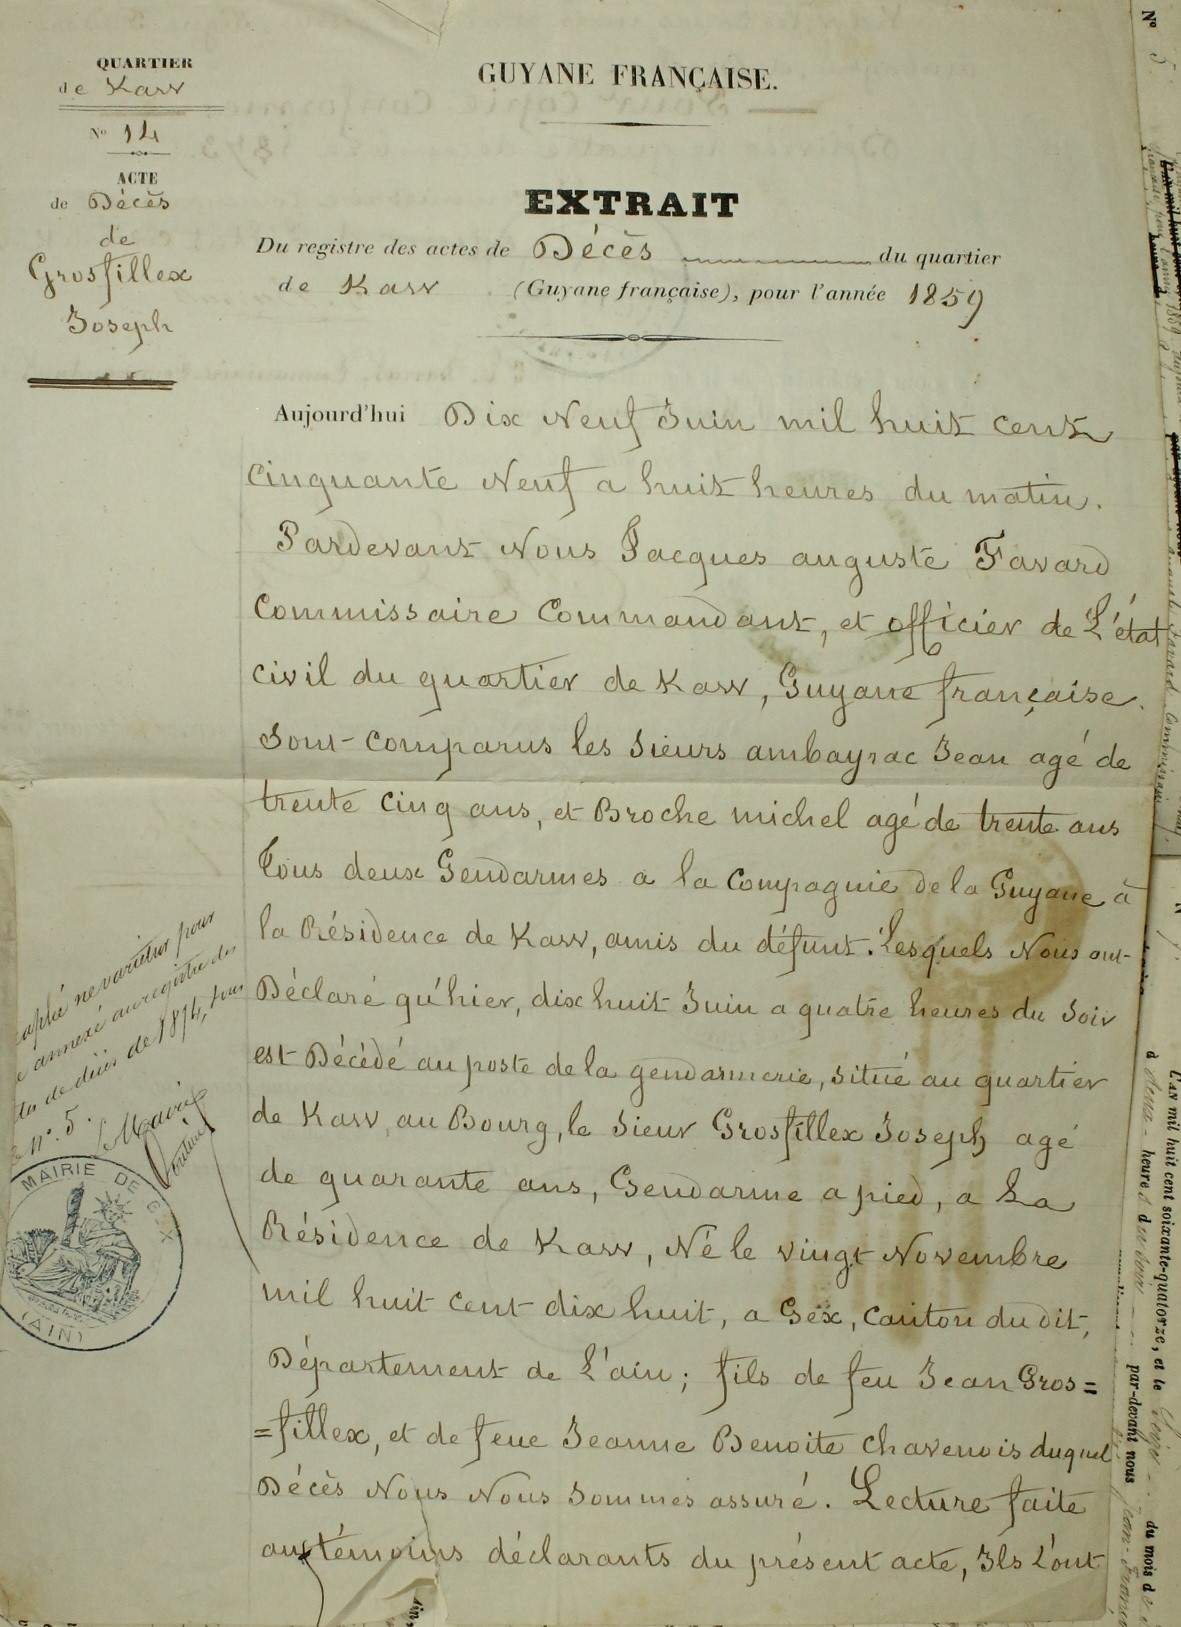 QUARTIER
de Kaw
N° 14
ACTE
de Décès
de
Grosfillex
Joseph
GUYANE FRANÇAISE.
EXTRAIT
Du registre des actes de Décès du quartier
de Kaw (Guyane française), pour l'année 1859
Aujourd'hui Dix Neuf Juin mil huit cent
cinquante Neuf a huit heures du matin.
Pardevant Nous Jacques auguste Favard
Commissaire Commandant, et officier de L'état
civil du quartier de Kaw, Guyane française.
Sont comparus les Sieurs ambayrac Jean agé de
trente cinq ans, et Broche michel agé de trente ans
Tous deux Gendarmes a la Compagnie de la Guyane à
la Résidence de Kaw, amis du défunt. Lesquels Nous ont
Déclaré qu'hier, dix huit Juin a quatre heures du Soir
est Décédé au poste de la gendarmerie, situé au quartier
de Kaw, au Bourg, le Sieur Grosfillex Joseph agé
de quarante ans, Gendarme a pied, a La
Résidence de Kaw, Né le vingt Novembre
mil huit cent dix huit, a Gex, canton du dit,
Département de L'ain; fils de feu Jean Gros=
=fillex, et de feue Jeanne Benoite Chavenois duquel
Décès Nous Nous Sommes assuré. Lecture faite
aux témoins déclarants du présent acte, Ils L'ont
ne varietur pour
annexé au registre des
de décès de 1874, sous
n°. 5.
MAIRIE DE GEX
(AIN)
N° 5
L'an mil huit cent soixante-quatorze, et le du mois de
à heures du par-devant nous